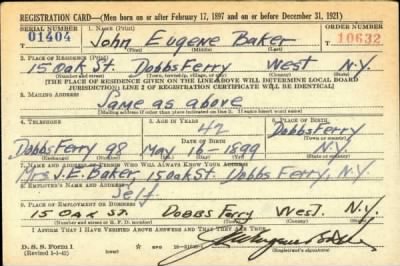 REGISTRATION CARD—(Men born on or after February 17, 1897 and on or before December 31, 1921)
SERIAL NUMBER 1. NAME (Print) ORDER NUMBER
U1404 John Eugene Baker 10632
(First) (Middle) (Last)
2. PLACE OF RESIDENCE (Print)
15 Oak St. Dobbs Ferry West N.Y.
(Number and street) (Town, township, village, or city) (County) (State)
[THE PLACE OF RESIDENCE GIVEN ON THE LINE ABOVE WILL DETERMINE LOCAL BOARD
JURISDICTION; LINE 2 OF REGISTRATION CERTIFICATE WILL BE IDENTICAL]
3. MAILING ADDRESS
Same as above
[Mailing address if other than place indicated on line 2. If same insert word same]
4. TELEPHONE 5. AGE IN YEARS 6. PLACE OF BIRTH
42 Dobbs Ferry
DATE OF BIRTH (Town or county)
Dobbs Ferry 98 May 16-1899 N.Y.
(Exchange) (Number) (Mo.) (Day) (Yr.) (State or country)
7. NAME AND ADDRESS OF PERSON WHO WILL ALWAYS KNOW YOUR ADDRESS
Mrs J.E. Baker, 15 Oak St. Dobbs Ferry, N.Y.
8. EMPLOYER'S NAME AND ADDRESS
Self
9. PLACE OF EMPLOYMENT OR BUSINESS
15 Oak St. Dobbs Ferry West. N.Y.
(Number and street or R. F. D. number) (Town) (County) (State)
I AFFIRM THAT I HAVE VERIFIED ABOVE ANSWERS AND THAT THEY ARE TRUE.
D. S. S. Form 1
(Revised 1-1-42) (over)